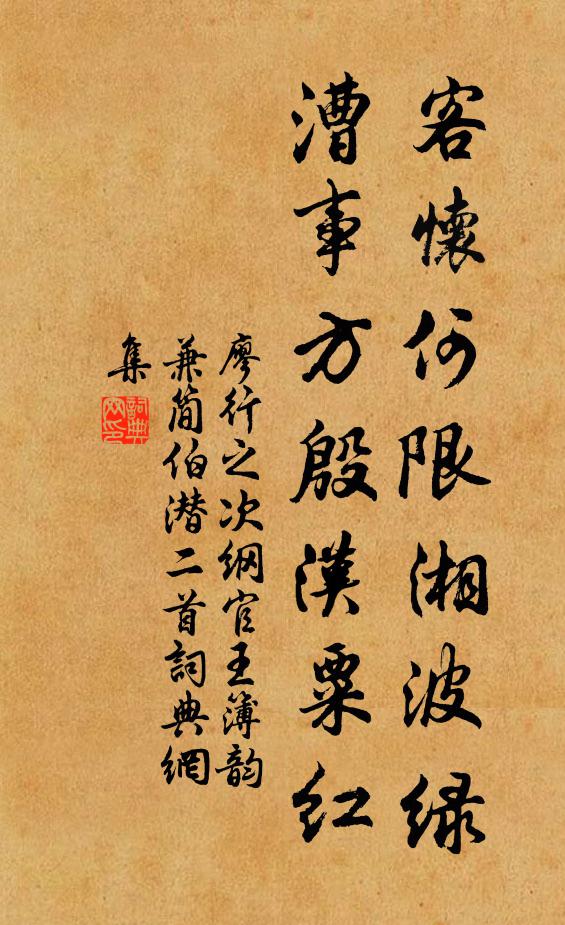 客懷何限湘波绿
漕事方殷漢粟红
廖行之次纲官王簿韵
兼简伯潜二首詞典網
集
詞典
网印